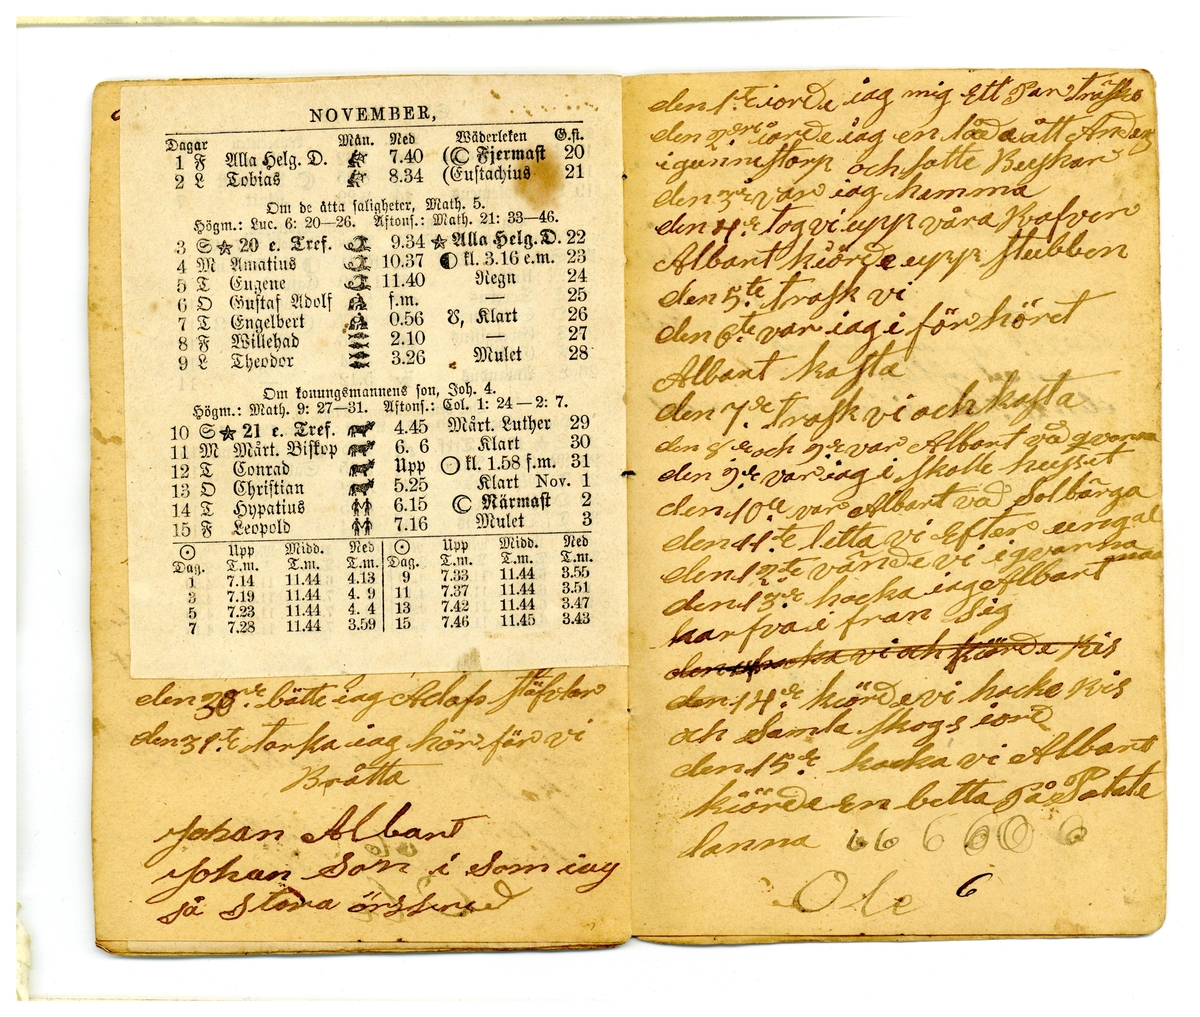 NOVEMBER,
Dagar Mån. Ned Wäderleken G.st.
1 F Alla Helg. D. 7.40 (☾ Fjermast 20
2 L Tobias 8.34 (Eustachius 21
Om de åtta saligheter, Math. 5.
Högm.: Luc. 6: 20—26. Aftons.: Math. 21: 33—46.
3 S ★ 20 e. Tref. 9.34 ★ Alla Helg. D. 22
4 M Amatius 10.37 ◐ kl. 3.16 e.m. 23
5 T Eugene 11.40 Regn 24
6 O Gustaf Adolf f.m. — 25
7 T Engelbert 0.56 ☋, Klart 26
8 F Willehad 2.10 — 27
9 L Theodor 3.26 Mulet 28
Om konungsmannens son, Joh. 4.
Högm.: Math. 9: 27—31. Aftons.: Col. 1: 24—2: 7.
10 S ★ 21 e. Tref. 4.45 Mårt. Luther 29
11 M Mårt. Biskop 6. 6 Klart 30
12 T Conrad Upp ○ kl. 1.58 f.m. 31
13 O Christian 5.25 Klart Nov. 1
14 T Hypatius 6.15 ☾ Närmast 2
15 F Leopold 7.16 Mulet 3
☉ Upp Midd. Ned ☉ Upp Midd. Ned
Dag. T.m. T.m. T.m. Dag. T.m. T.m. T.m.
1 7.14 11.44 4.13 9 7.33 11.44 3.55
3 7.19 11.44 4. 9 11 7.37 11.44 3.51
5 7.23 11.44 4. 4 13 7.42 11.44 3.47
7 7.28 11.44 3.59 15 7.46 11.45 3.43
den 30 bötte iag Adafs stöfvlar
den 31te torska iag hör för vi
Brötta
Johan Albart
Johan Son i Som iag
så stora
den 1te iorde iag mig Ett Par träsko
den 2 iorde iag en låda ått Andes
i gunnistorp och satte Buskar
den 3 var iag hemma
den 4 tog vi upp våra Krafver
Albart kiörde upp stubben
den 5te trosk vi
den 6te var iag i för höret
Albart kasta
den 7 trosk vi och kasta
den 8 och 9 var Albart våd qvarna
den 9 var iag i skolle huset
den 10 var Albart våd Solbärga
den 11te letta vi Efter
den 12te vände vi i qvarna
den 13 hacka iag Albart
harfvae fran sig
hacka vi och kiörde Ris
den 14 kiörde vi hacke Ris
och Samla skogs iord
den 15 hacka vi Albart
kiörde En betta på Potete
lanna 6 6 6 6 0 6
Ole 6